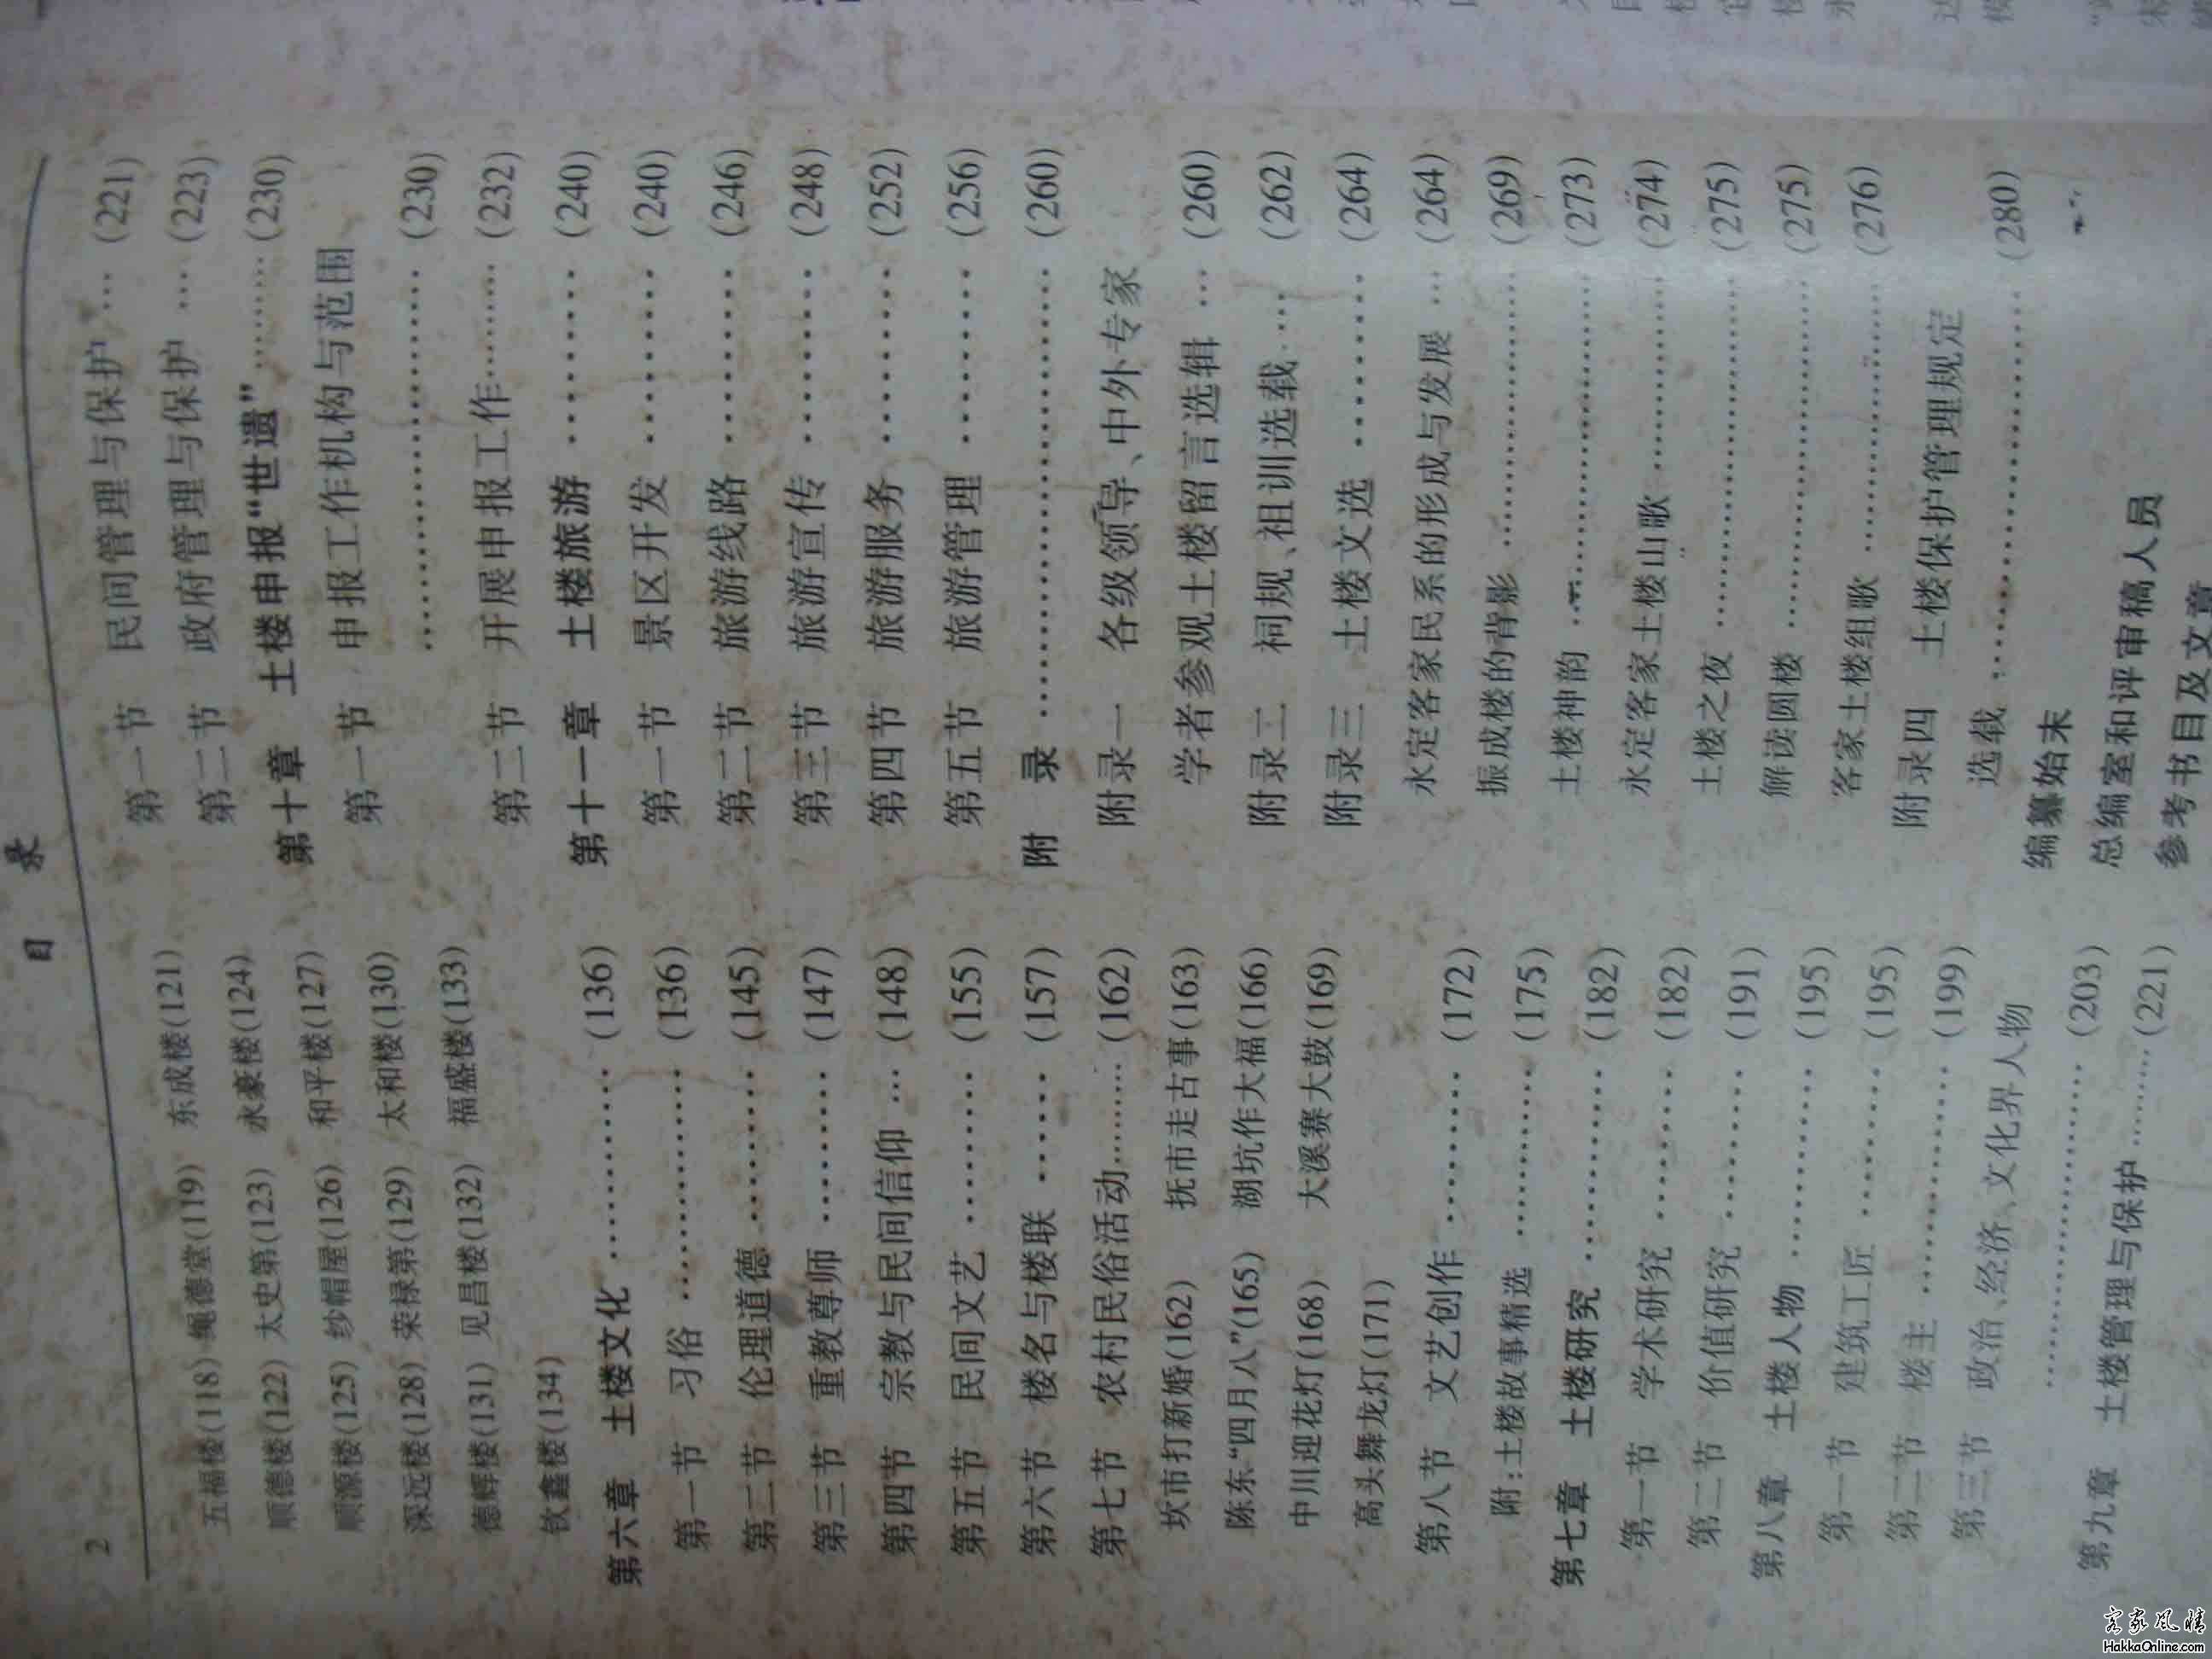 2
目 录
五福楼(118) 绳德堂(119) 东成楼(121)
顺德楼(122) 太史第(123) 永豪楼(124)
顺源楼(125) 纱帽屋(126) 和平楼(127)
深远楼(128) 荣禄第(129) 太和楼(130)
德辉楼(131) 见昌楼(132) 福盛楼(133)
钦鑫楼(134)
第六章 土楼文化 ………… (136)
第一节 习俗 …………… (136)
第二节 伦理道德 ……… (145)
第三节 重教尊师 ……… (147)
第四节 宗教与民间信仰 … (148)
第五节 民间文艺 ……… (155)
第六节 楼名与楼联 …… (157)
第七节 农村民俗活动……… (162)
坎市打新婚(162) 抚市走古事(163)
陈东“四月八”(165) 湖坑作大福(166)
中川迎花灯(168) 大溪赛大鼓(169)
高头舞龙灯(171)
第八节 文艺创作 ……… (172)
附:土楼故事精选 ………… (175)
第七章 土楼研究 ………… (182)
第一节 学术研究 ……… (182)
第二节 价值研究 ……… (191)
第八章 土楼人物 ………… (195)
第一节 建筑工匠 ……… (195)
第二节 楼主 …………… (199)
第三节 政治、经济、文化界人物
…………………… (203)
第九章 土楼管理与保护 ……… (221)
第一节 民间管理与保护 … (221)
第二节 政府管理与保护 … (223)
第十章 土楼申报“世遗” ……… (230)
第一节 申报工作机构与范围
…………………… (230)
第二节 开展申报工作……… (232)
第十一章 土楼旅游 ……… (240)
第一节 景区开发 ……… (240)
第二节 旅游线路 ……… (246)
第三节 旅游宣传 ……… (248)
第四节 旅游服务 ……… (252)
第五节 旅游管理 ……… (256)
附 录 …………………… (260)
附录一 各级领导、中外专家
学者参观土楼留言选辑 … (260)
附录二 祠规、祖训选载… (262)
附录三 土楼文选 ……… (264)
永定客家民系的形成与发展 … (264)
振成楼的背影 …………… (269)
土楼神韵 ………………… (273)
永定客家土楼山歌 ……… (274)
土楼之夜 ………………… (275)
解读圆楼 ………………… (275)
客家土楼组歌 …………… (276)
附录四 土楼保护管理规定
选载 …………………… (280)
编纂始末
总编室和评审稿人员
参考书目及文章
客家风情
HakkaOnline.com